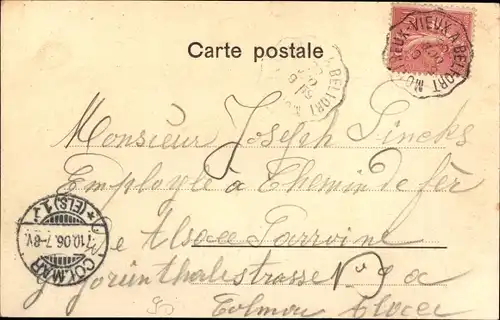 Carte postale
MONTREUX-VIEUX A BELFORT
A BELFORT
Monsieur Joseph Lincks
Employé à Chemin de fer
Alsace Lorraine
Grünthalestrasse No 9 a
Colmar Alsace
COLMAR
*(ELS) 1*
7.10.06.7-8V.